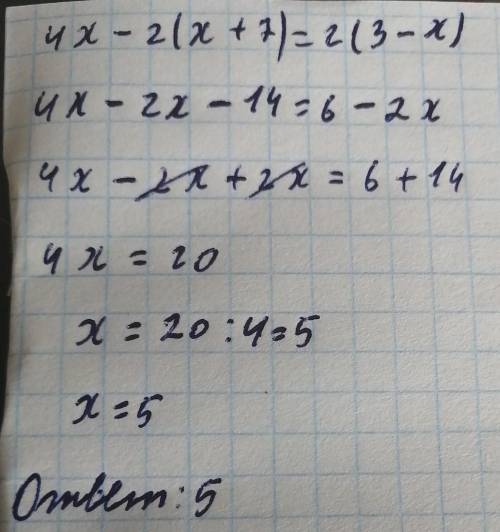 4x - 2(x + 7) = 2(3 - x)
4x - 2x - 14 = 6 - 2x
4x - 2x + 2x = 6 + 14
4x = 20
x = 20 : 4 = 5
x = 5
Ответ: 5